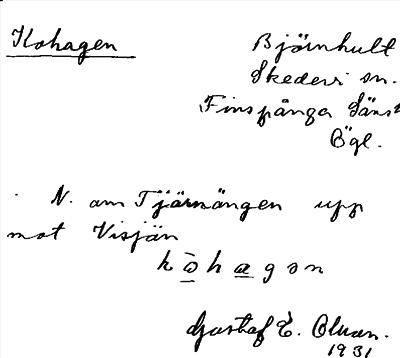 Kohagen
Björnhult
Skedevi sn.
Finspånga läns
Ögl.
N. om Tjärnängen upp
mot Visjön
kòhagən
Gustaf E. Olsson.
1931